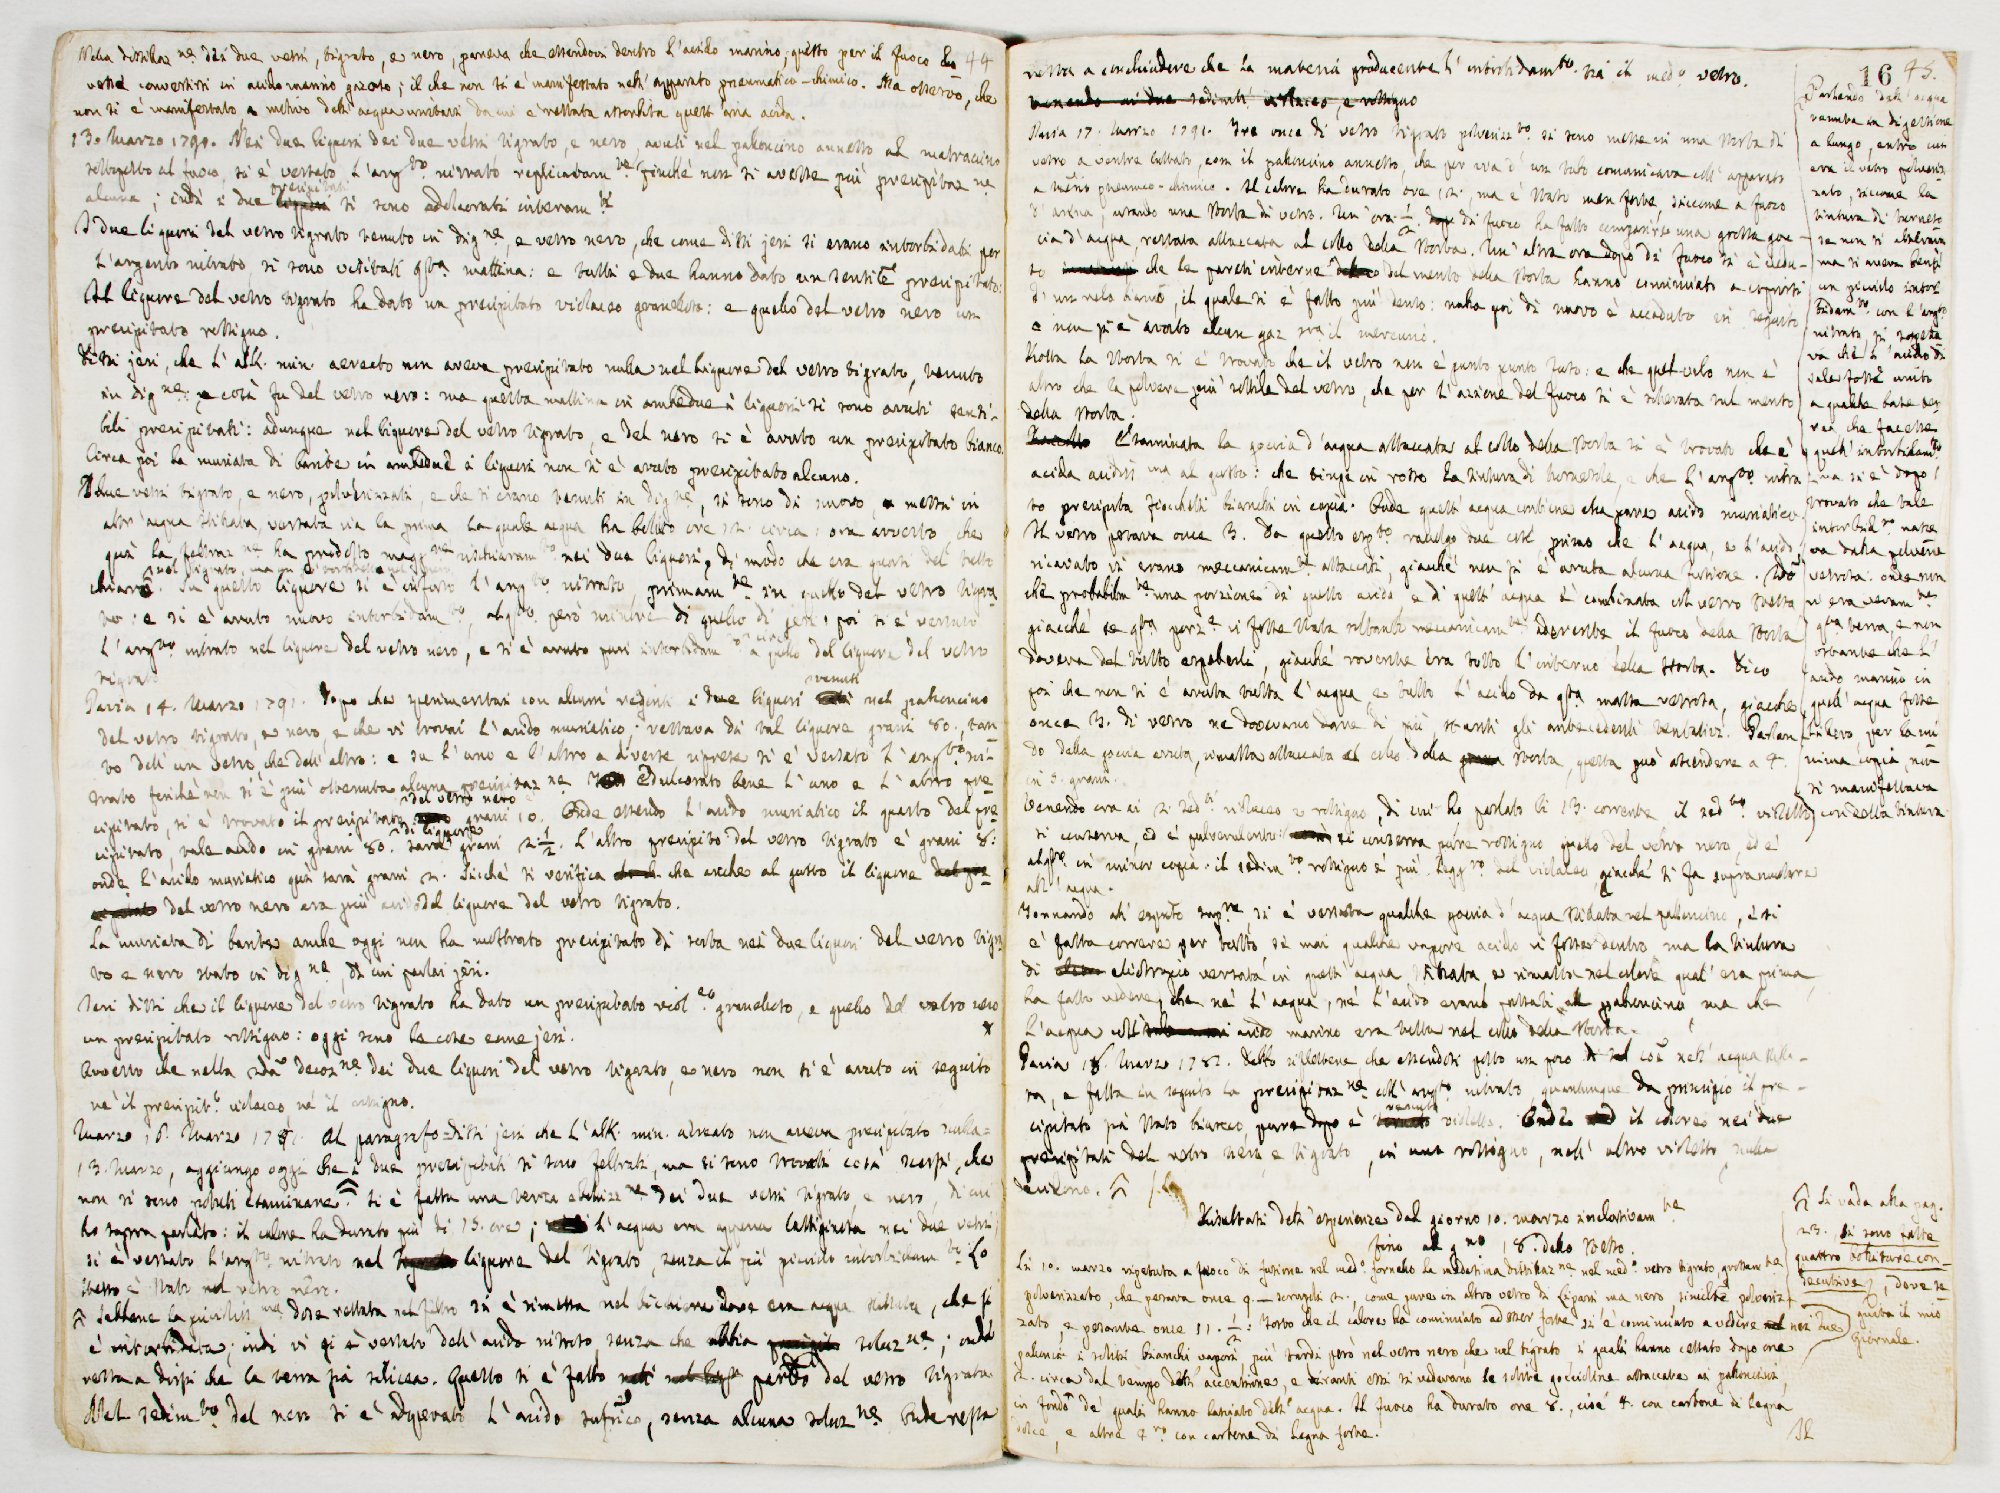 Nella distillaz.ne dei due vetri, tigrato, e nero, pareva che essendovi dentro l'acido marino, questo per il fuoco 44
convertirsi in acido marino gazoso; il che non si è manifestato nell'apparato pneumatico-chimico. Ma osservo, che
non si è manifestato a motivo dell'acqua da cui è restata assorbita quest'aria acida.
13. Marzo 1791. Nei due liquori dei due vetri tigrato, e nero, avuti nel palloncino annesso al matraccino
sottoposto al fuoco, si è versato l'arg.to nitrato replicatam.te finché non si avesse più precipitaz.ne
alcuna; indi i due precipitati si sono addolcorati interam.te
I due liquori del vetro tigrato tenuto in dig.ne, e vetro nero, che come dissi jeri si erano intorbidati per
l'argento nitrato si sono visitati q.ta mattina: e tutti e due hanno dato un precipitato:
Il liquore del vetro tigrato ha dato un precipitato violaceo grandetto: e quello del vetro nero un
precipitato rossigno.
Dissi jeri, che l'alk. min. aereato non aveva precipitato nulla nel liquore del vetro tigrato, tenuto
in dig.ne e così fu del vetro nero: ma questa mattina in ambedue i liquori si sono avuti sensi-
bili precipitati: adunque nel liquore del vetro tigrato, e del nero si è avuto un precipitato bianco.
Circa poi la muriata di barite in ambedue i liquori non si è avuto precipitato alcuno.
I due vetri tigrato, e nero, polverizzati, e che si erano tenuti in dig.ne, si sono di nuovo messi in
altr'acqua stillata, versata via la prima la quale acqua ha bollito ore 12. circa; ora avverto, che
qui la feltraz.ne ha prodotto magg.re nei due liquori, di modo che era quasi del tutto
chiaro. In questo liquore si è infuso l'arg.to nitrato, primam.te in quello del vetro tigra-
to: e si è avuto nuovo intorbidam.to, alq.to però minore di quello di jeri; poi si è versato
l'arg.to nitrato nel liquore del vetro nero, e si è avuto pari intorbidam.to a quello del liquore del vetro
tigrato.
Pavia 14. Marzo 1791. Dopo che sperimentai con alcuni reagenti i due liquori venuti nel palloncino
del vetro tigrato, e nero, e che vi trovai l'acido muriatico; restava di tal liquore grani 80., tan-
to dell'un vetro che dell'altro: e su l'uno e l'altro a diverse riprese si è versato l'arg.to ni-
trato finché non si è più ottenuta alcuna precipitaz.ne. Edulcorato bene l'uno e l'altro pre-
cipitato, si è trovato il precipitato del vetro nero grani 10. Onde essendo l'acido muriatico il quarto del pre-
cipitato, vale acido in grani 80. di liquore sarà grani 2 1/2. L'altro precipito del vetro tigrato è grani 8:
onde l'acido muriatico qui sarà grani 2. Sicché si verifica che anche al gusto il liquore
del vetro nero era più acido del liquore del vetro tigrato.
La muriata di barite anche oggi non ha mostrato precipitato di sorta nei due liquori del vetro tigra-
to e nero stato in dig.ne, di cui parlai jeri.
Jeri dissi che il liquore del vetro tigrato ha dato un precipitato viol.eo grandetto, e quello del vetro nero
un precipitato rossigno: oggi sono le cose come jeri.
Avverto che nella 2da decoz.ne dei due liquori del vetro tigrato, e nero non si è avuto in seguito
né il precipit.to violaceo né il rossigno.
Marzo 16. Marzo 1791. Al paragrafo = Dissi jeri che l'alk. min. aereato non aveva precipitato nulla =
13. Marzo, aggiungo oggi che i due precipitati si sono feltrati, ma si sono trovati così scarsi, che
non si sono potuti esaminare. Si è fatta una terza ebolliz.ne dei due vetri tigrato, e nero, di cui
ho sopra parlato: il calore ha durato più di 15. ore; l'acqua era appena lattiginosa nei due vetri;
si è versato l'arg.to nitrato nel liquore del tigrato, senza il più piccolo intorbidam.to. Lo
stesso è stato nel vetro nero.
Sebbene la piccoliss.ma dose restata nel feltro si è rimessa nel bicchiere dove era acqua stillata, che si
è intorbidata; indi vi si è versato dell'acido nitroso, senza che abbia soluz.ne; onde
resta a dirsi che la terra sia silicea. Questo si è fatto del vetro tigrato.
Nel sedim.to del nero si è adoperato l'acido sulfurico, senza alcuna soluz.ne. Onde resta
16 45.
resta a conchiudere che la materia producente l'intorbidam.to sia il med.o vetro.
Pavia 17. Marzo 1791. Tre once di vetro tigrato polverizz.to si sono messe in una storta di
vetro a ventre lutato, con il palloncino annesso, che per via d'un tubo comunicava coll'apparato
a merc. pneumo-chimico. Il calore ha durato ore 12. ma è stato men forte siccome a fuoco
d'arena, usando una storta di vetro. Un'ora 1/2 di fuoco ha fatto comparire una grossa goc-
cia d'acqua, restata attaccata al collo della storta. Un'altra ora dopo di fuoco si è vedu-
to che le pareti interne del mento della storta hanno cominciato a coprirsi
d'un velo, il quale si è fatto più denso: nulla poi di nuovo è accaduto in seguito
e non si è avuto alcun gaz sra il mercurio.
Rotta la storta si è trovato che il vetro non è punto punto fuso: e che quel velo non è
altro che la polvere più sottile del vetro, che per l'azione del fuoco si è sollevata sul mento
della storta.
Esaminata la goccia d'acqua attaccata al collo della storta si è trovato che è
acida acidiss.ma al gusto: che tinge in rosso la tintura di tornesole, e che l'arg.to nitra-
to precipita fiocchetti bianchi in copia. Onde quest'acqua contiene che pare acido muriatico.
Il vetro pesava once 3. Da questo esp.to raccolgo due cose, primo che l'acqua, e l'acido
ricavato vi erano meccanicam.te attaccati, giacché non si è avuta alcuna fusione. 2do
che probabilm.te una porzione di questo acido e di quest'acqua è combinata col vetro stesso
giacché se q.ta porz.e vi fosse stata soltanto meccanicam.te aderente il fuoco della storta
doveva del tutto espellerla, giacché rovente era tutto l'interno della storta. Dico
poi che non si è avuta tutta l'acqua, e tutto l'acido da q.ta massa vetrosa, giacché
once 3. di vetro ne dovevano dare di più, stanti gli antecedenti tentativi. Parlan-
do della goccia avuta, rimasta attaccata al collo della storta, questa può ascendere a 4.
in 5. grani.
Venendo ora ai 2. sed.ti violaceo e rossigno, di cui ho parlato li 13. corrente il sed.to violetto
si conserva, ed è polverulento: si conserva pure rossigno quello del vetro nero, ed è
in minor copia: il sedim.to rossigno è più legg.ro del violaceo, giacché si fa sopranuotare
all'acqua.
Tornando all'esp.to si è versata qualche goccia d'acqua stillata nel palloncino, e si
è fatta correre per tutto se mai qualche vapore acido vi fosse dentro ma la tintura
di elictropio versata in quest'acqua stillata e rimasta nel colore qual'era prima,
ha fatto vedere, che né l'acqua, né l'acido erano passati al palloncino ma che
l'acqua coll'acido marino era tutta nel collo della storta.
Pavia 18. Marzo 178 . che essendosi posto un poco nell'acqua stilla-
ta, e fatta in seguito la precipitaz.ne coll'arg.to nitrato, quantunque da principio il pre-
cipitato sia stato bianco, pure dopo è venuto violetto. Onde il colore nei due
precipitati del vetro nero e tigrato, in uno rossigno, nell'altro violetto, nulla
decidono.
Risultati dell'esperienze dal giorno 10. marzo inclusivam.te
fino al g.no 18. dello stesso.
Li 10. marzo ripetuta a fuoco di fusione nel med.o fornello la medesima distillaz.ne nel med.o vetro tigrato, grossam.te
polverizzato, che pesava once 9. — 2., come pure in altro vetro di Lipari ma nero simile polveriz-
zato, e pesante once 11. 1/2: tosto che il calore ha cominciato ad esser forte si è cominciato a vedere nei due
palloncini i soliti bianchi vapori, più tardi però nel vetro nero, che nel tigrato i quali hanno cessato dopo ore
2. circa dal tempo dell'accensione, e duranti essi si vedevano le solite goccioline attaccate ai palloncini,
in fondo de' quali hanno lasciato dell'acqua. Il fuoco ha durato ore 8., cioè 4. con carbone di legna
dolce, e altre 4.ro con carbone di legna forte.
Parlando dell'acqua
tenuta in digestione
a lungo, entro cui
era il vetro polveriz-
zato, siccome la
tintura di tornaso-
le non si alterava
ma si aveva bensì
un piccolo intor-
bidam.to con l'arg.to
nitrato, si sospetta-
va che l'acido di
sale fosse unito
a qualche base ter-
rea che facesse
quell'intorbidam.to
ma si è dopo
trovato che tale
intorbid.to nasce-
va dalla polvere
vetrosa: onde non
vi era veram.te
q.ta terra, e non
ostante che l'
acido marino in
quell'acqua fosse
libero, per la mi-
nima copia, non
si manifestava
con colla tintura.
Si vada alla pag.
23. Si sono fatte
quattro bolliture con-
secutive, dove se-
guita il mio
Giornale.
Il